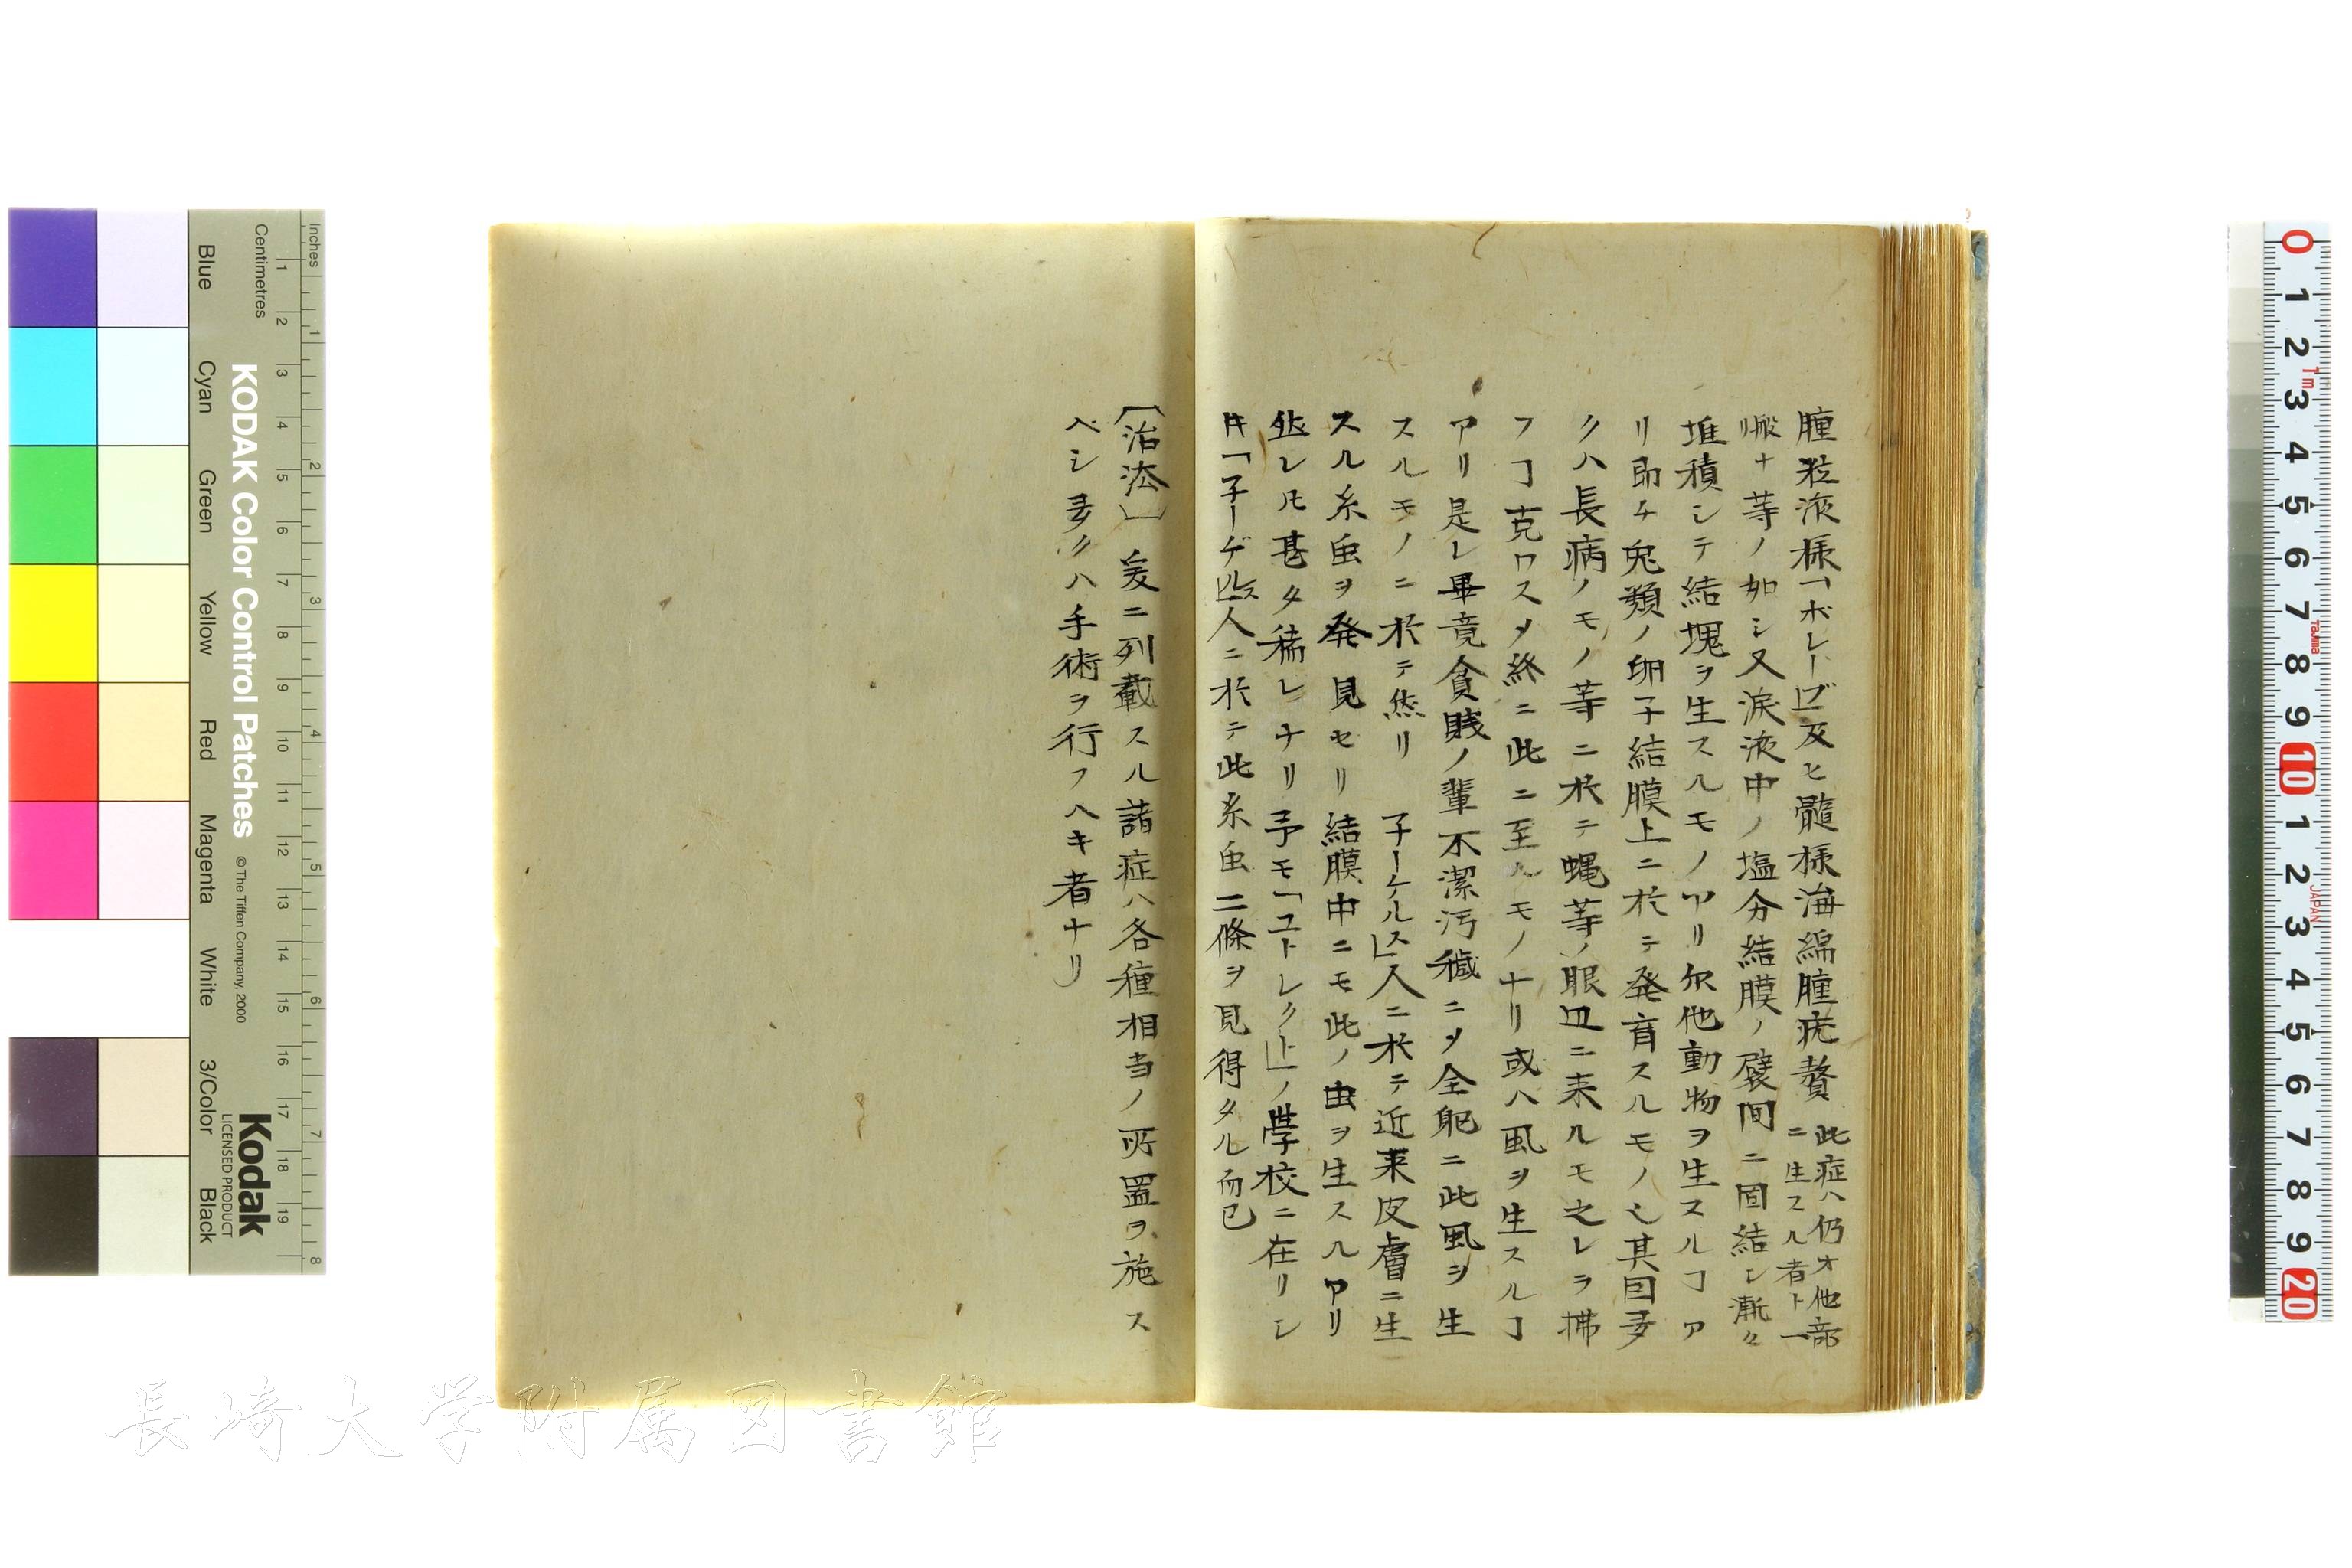 腫粒液様「ボレーブ」及ヒ髄様海綿腫疣贅 此症ハ仍オ他部
ニ生スル者ト一
般ナリ等ノ如シ又涙液中ノ塩分結膜ノ襞間ニ固結シ漸々
堆積シテ結塊ヲ生スルモノアリ尔他動物ヲ生スルヿア
リ即チ兎類ノ卵子結膜上ニ於テ発育スルモノ也其因多
クハ長病ノモノ等ニ於テ蝿等ノ眼皿ニ来ルモ之レヲ拂
フヿ克ワスメ終ニ此ニ至ルモノナリ或ハ虱ヲ生スルヿ
アリ是レ畢竟貪賎ノ輩不潔汚穢ニメ全躯ニ此虱ヲ生
スルモノニ於テ然リ 子ーケルス」人ニ於テ近来皮膚ニ生
スル糸虫ヲ発見セリ結膜中ニモ此ノ虫ヲ生スルアリ
然レ𪜈甚タ稀レナリ予モ「ユトレクト」ノ學校ニ在リシ
𪜈「子ーゲルス」人ニ於テ此糸虫二條ヲ見得タル而已
〔治法〕爰ニ列載スル諸症ハ各種相当ノ所置ヲ施ス
ベシ多クハ手術ヲ行フヘキ者ナリ
長崎大学附属図書館
KODAK Color Control Patches
© The Tiffen Company, 2000
Kodak
LICENSED PRODUCT
Inches
Centimetres
Blue
Cyan
Green
Yellow
Red
Magenta
White
3/Color
Black
1 2 3 4 5 6 7 8 9 10 11 12 13 14 15 16 17 18 19
1 2 3 4 5 6 7 8
0 1 2 3 4 5 6 7 8 9 10 1 2 3 4 5 6 7 8 9 20
1m
Tajima
JAPAN